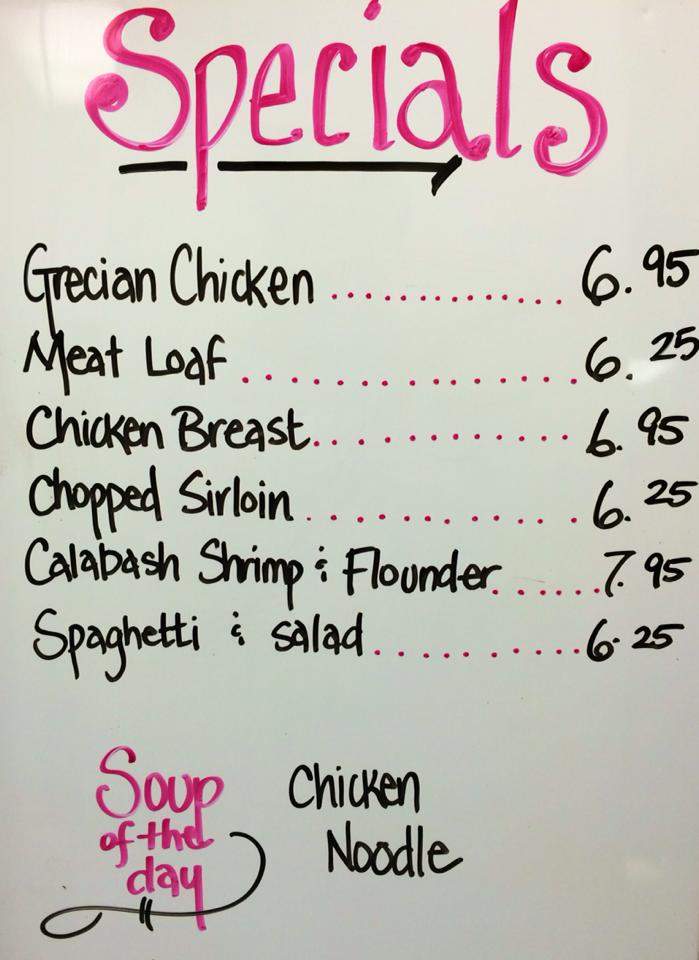 Specials
Grecian Chicken .............. 6.95
Meat Loaf ............... 6.25
Chicken Breast ............ 6.95
Chopped Sirloin ........... 6.25
Calabash Shrimp & Flounder ...... 7.95
Spaghetti & salad .......... 6.25
Soup of the day
Chicken Noodle